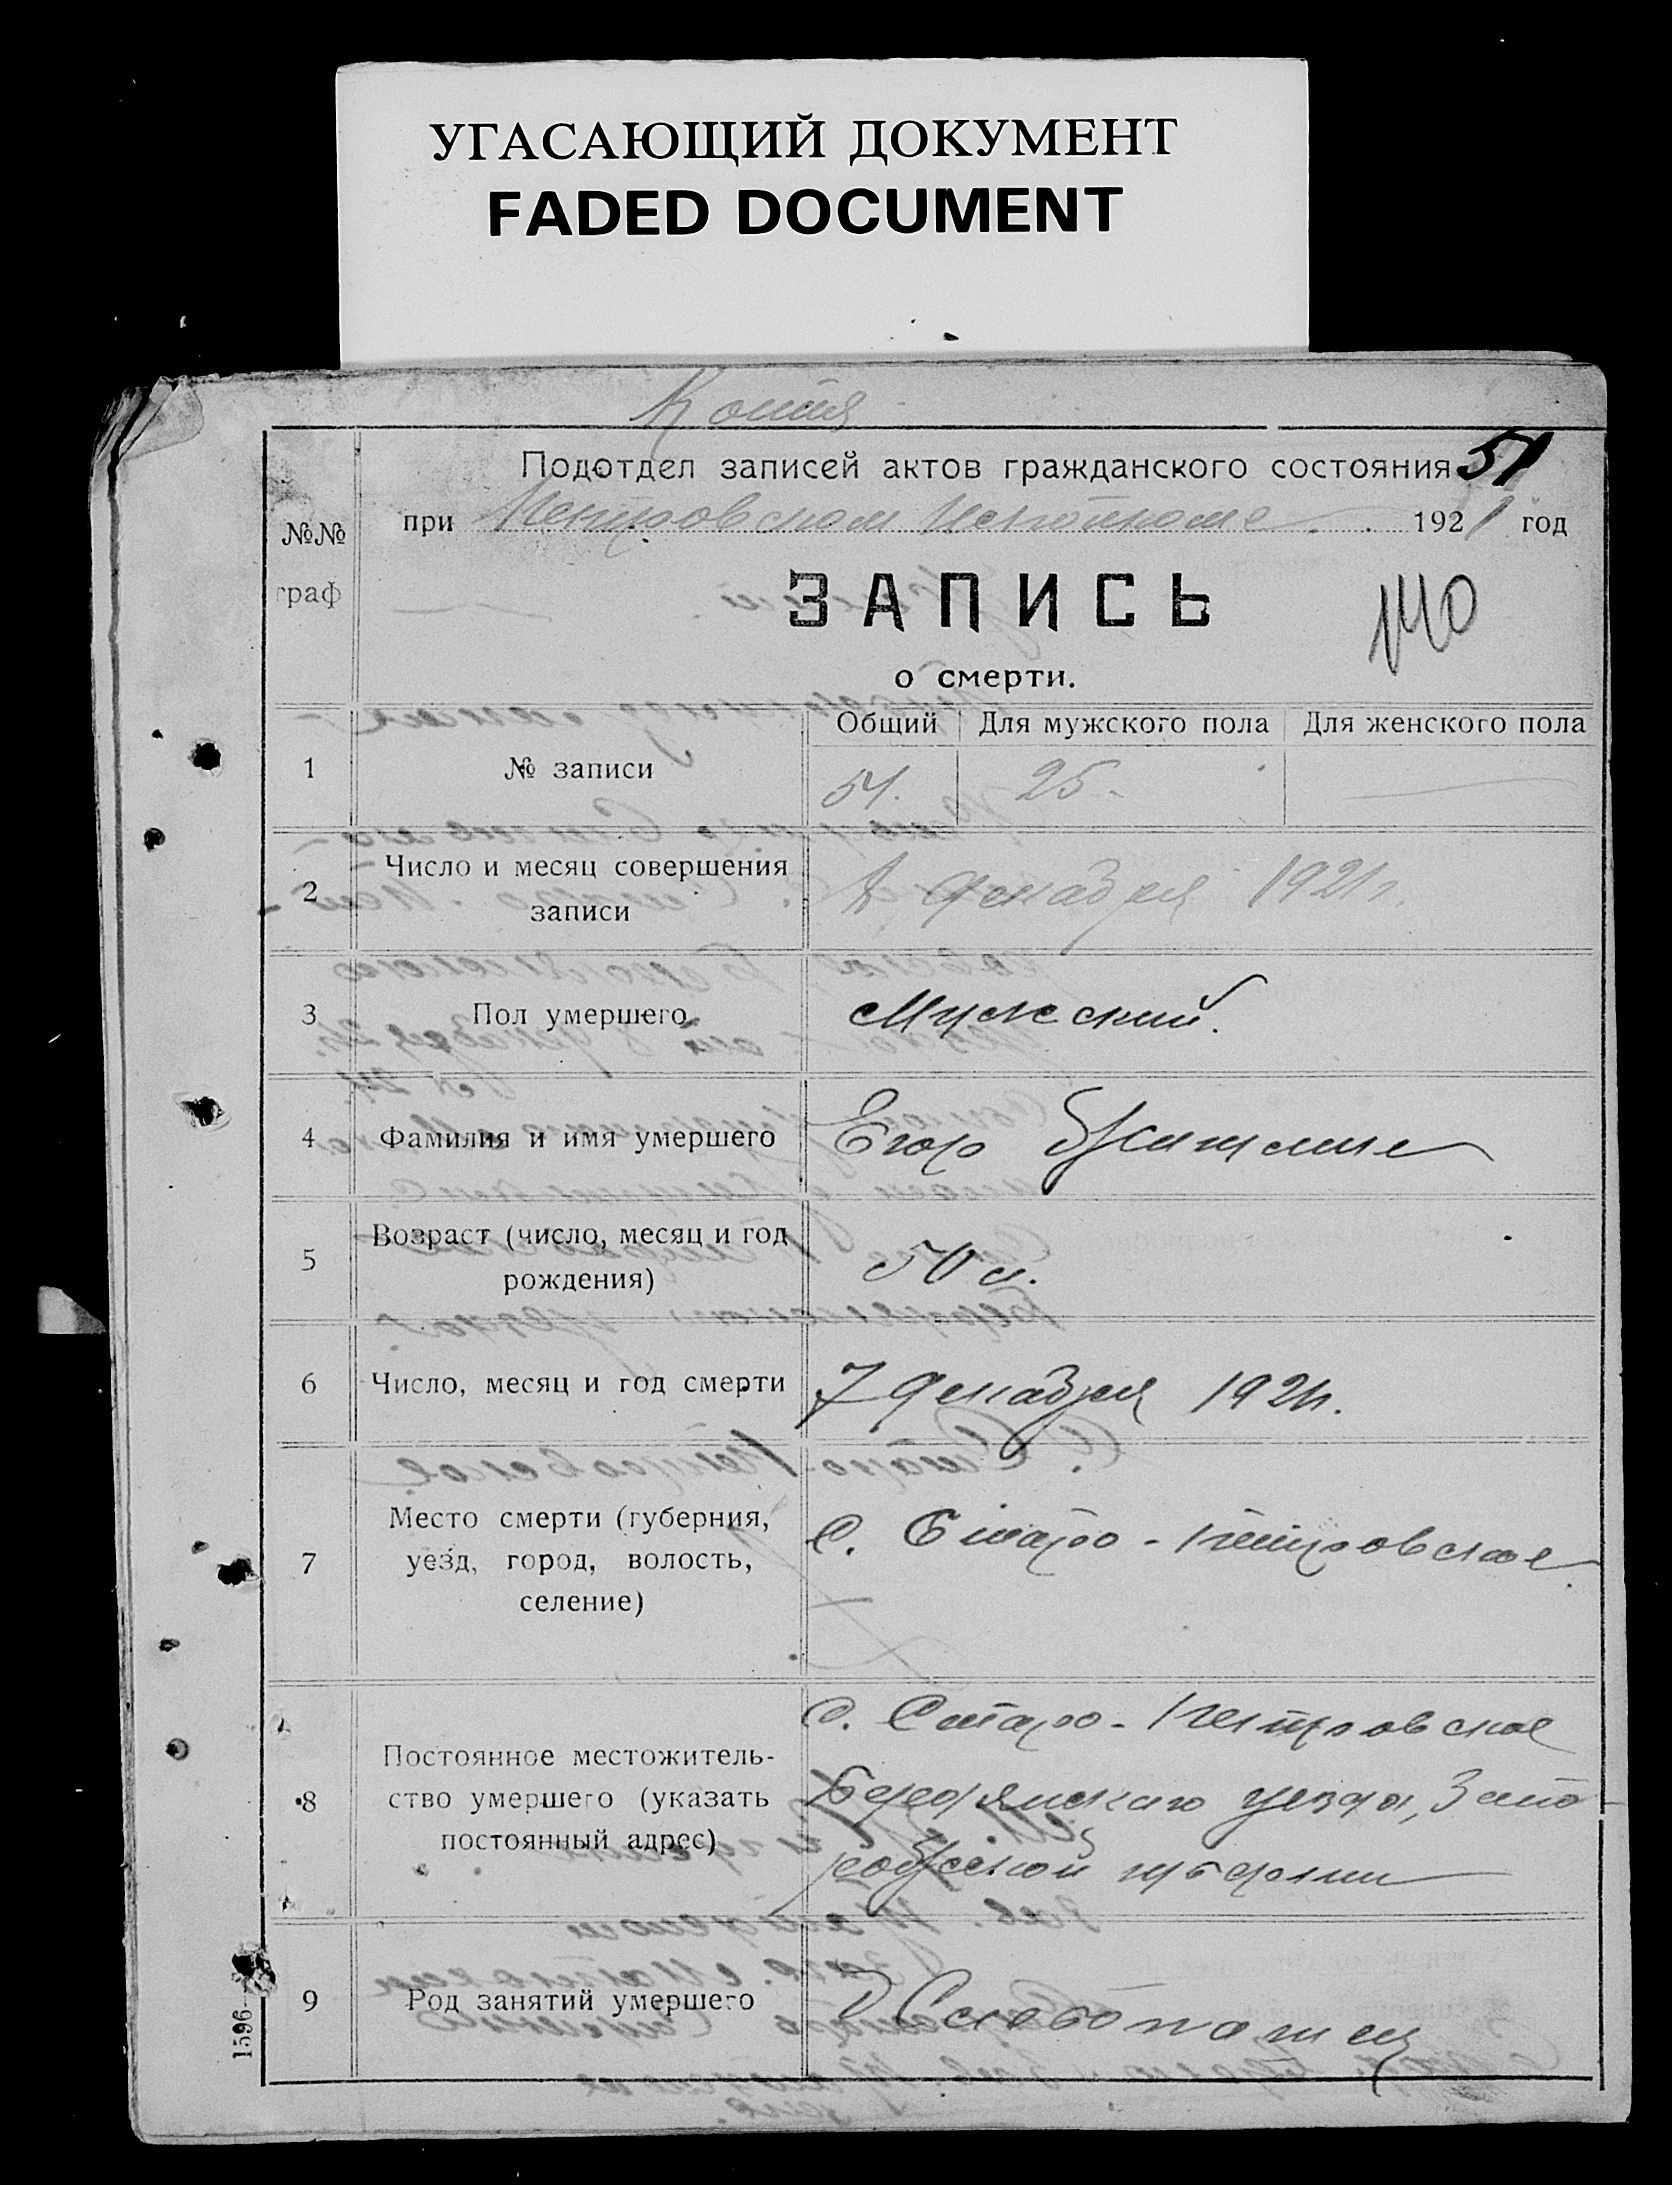 УГАСАЮЩИЙ ДОКУМЕНТ
FADED DOCUMENT
Копия
Подотдел записей актов гражданского состояния 51
при Петровском Исполкоме 1921 год
№№ граф
ЗАПИСЬ
140
о смерти.
Общий Для мужского пола Для женского пола
1 № записи 51. 25. —
2 Число и месяц совершения
записи
декабря 1921 г.
3 Пол умершего Мужской.
4 Фамилия и имя умершего Егор
5 Возраст (число, месяц и год
рождения)
50 л.
6 Число, месяц и год смерти 7 декабря 1921 г.
7 Место смерти (губерния,
уезд, город, волость,
селение)
С. Старо-Петровское
8 Постоянное местожитель-
ство умершего (указать
постоянный адрес)
С. Старо-Петровское
Бердянскаго уезда, Запо-
рожской губернии
9 Род занятий умершего Хлебопашец
1596